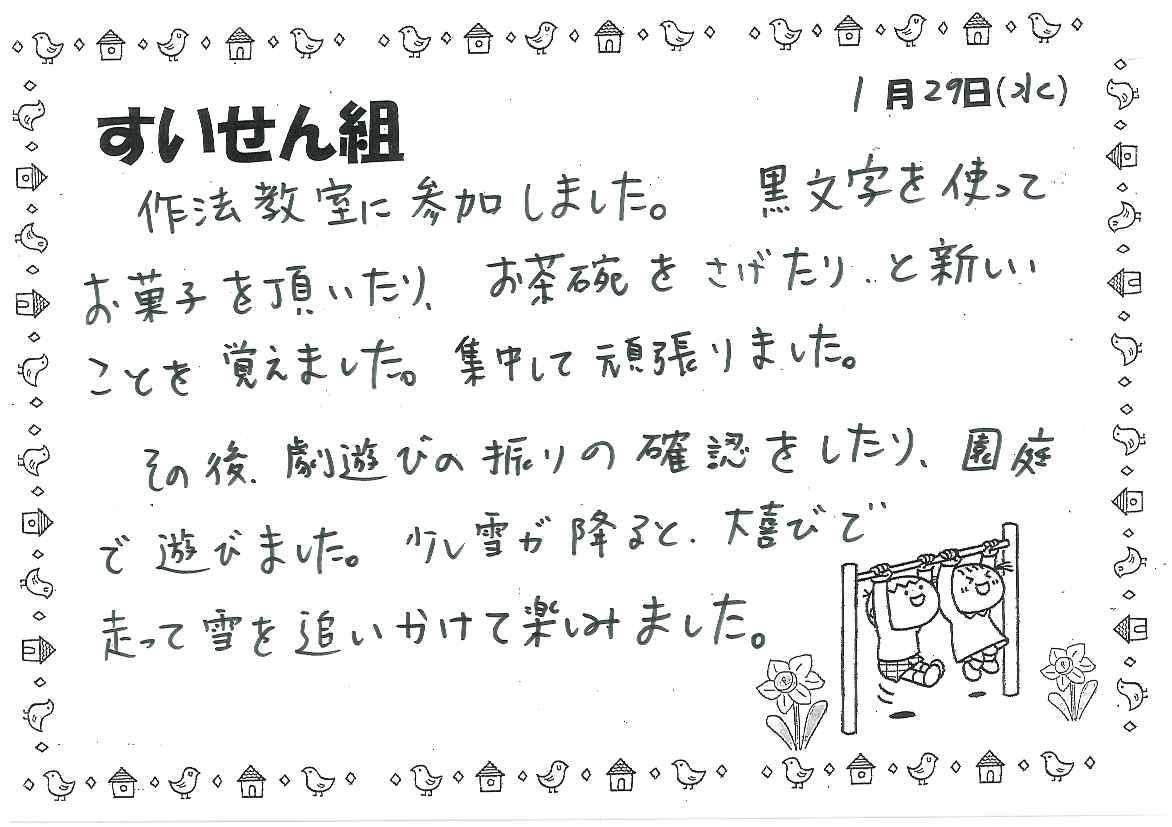 1月29日(水)
すいせん組
作法教室に参加しました。 黒文字を使って
お菓子を頂いたり、お茶碗をさげたり、と新しい
ことを覚えました。集中して頑張りました。
その後、劇遊びの振りの確認をしたり、園庭
で遊びました。少し雪が降ると、大喜びで
走って雪を追いかけて楽しみました。